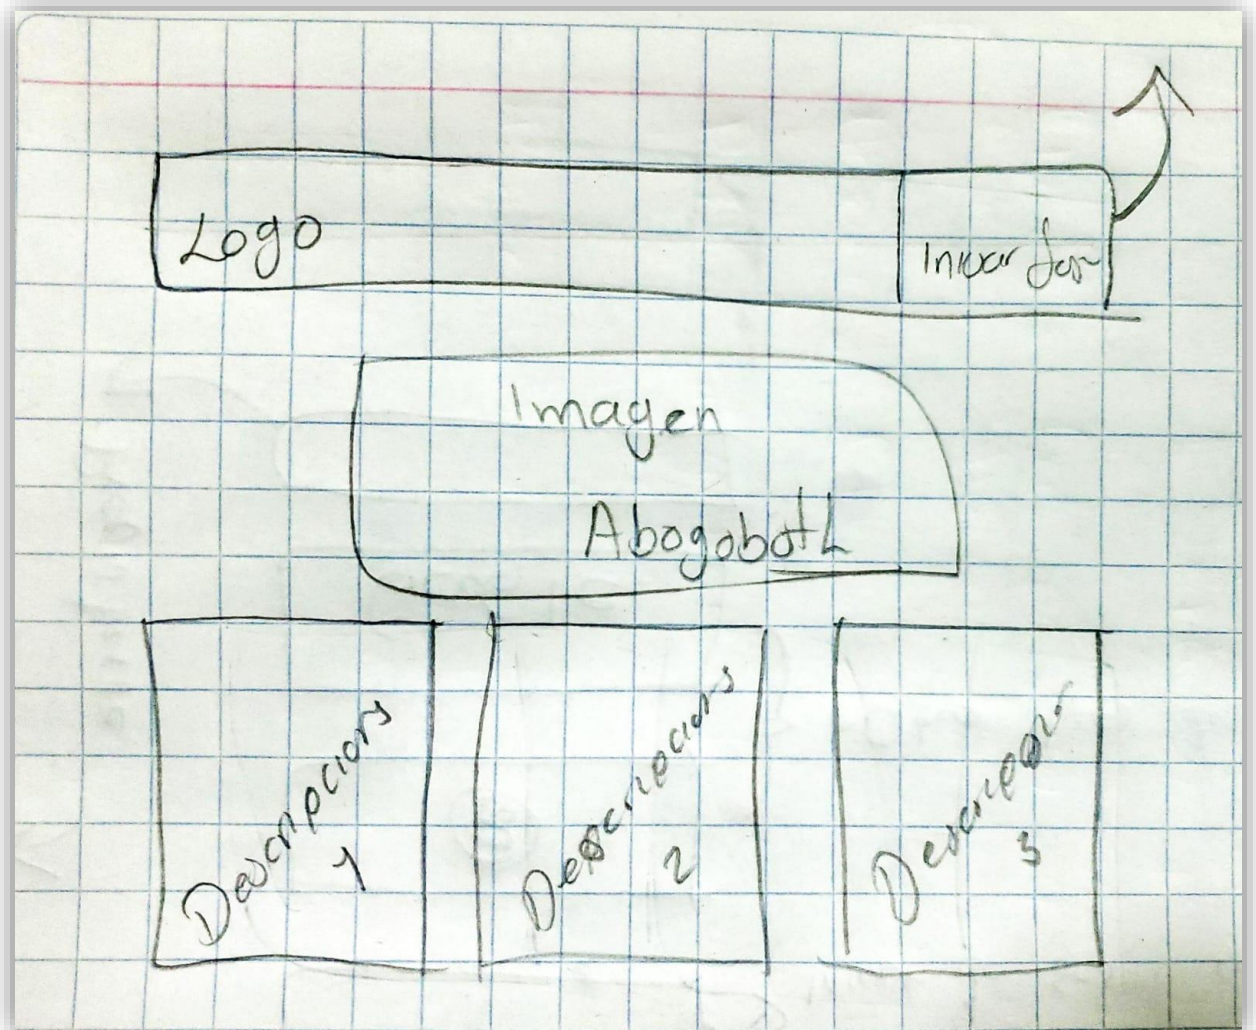 Logo
Iniciar
Imagen
Abogobot
Descripcion
1
Descripcion
2
Descripcion
3